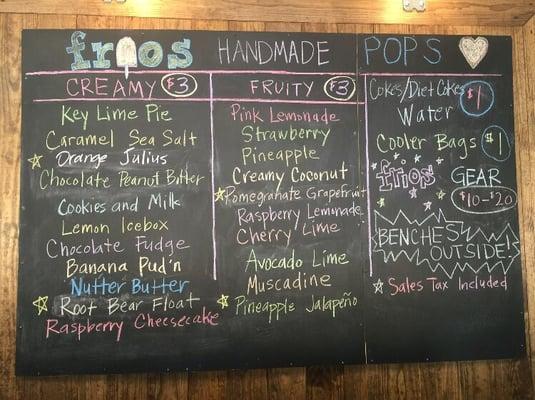 frios HANDMADE POPS
CREAMY $3
Key Lime Pie
Caramel Sea Salt
Orange Julius
Chocolate Peanut Bitter
Cookies and Milk
Lemon Icebox
Chocolate Fudge
Banana Pud'n
Nutter Butter
Root Bear Float
Raspberry Cheesecake
FRUITY $3
Pink Lemonade
Strawberry
Pineapple
Creamy Coconut
Pomegranate Grapefruit
Raspberry Lemonade
Cherry Lime
Avocado Lime
Muscadine
Pineapple Jalapeño
Cokes/Diet Cokes $1
Water
Cooler Bags $1
frios GEAR
$10-$20
BENCHES
OUTSIDE!
Sales Tax Included